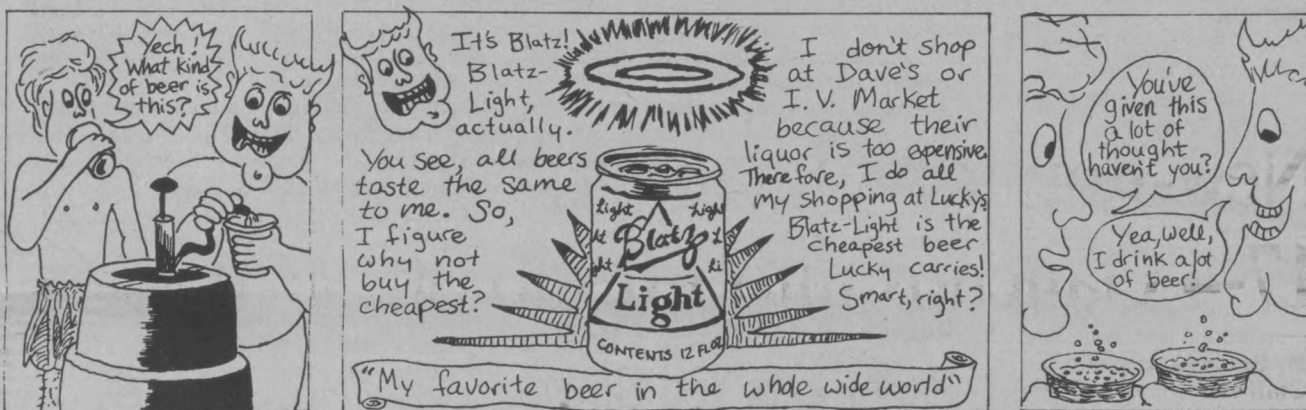 Yech!
What kind
of beer is
this?
It's Blatz!
Blatz-
Light,
actually.
You see, all beers
taste the same
to me. So,
I figure
why not
buy the
cheapest?
I don't shop
at Dave's or
I. V. Market
because their
liquor is too expensive.
Therefore, I do all
my shopping at Lucky's
Blatz-Light is the
cheapest beer
Lucky carries!
Smart, right?
light light
ht Blatz li
ght li
Light
CONTENTS 12 FL OZ
"My favorite beer in the whole wide world"
You've
given this
a lot of
thought
haven't you?
Yea, well,
I drink a lot
of beer!